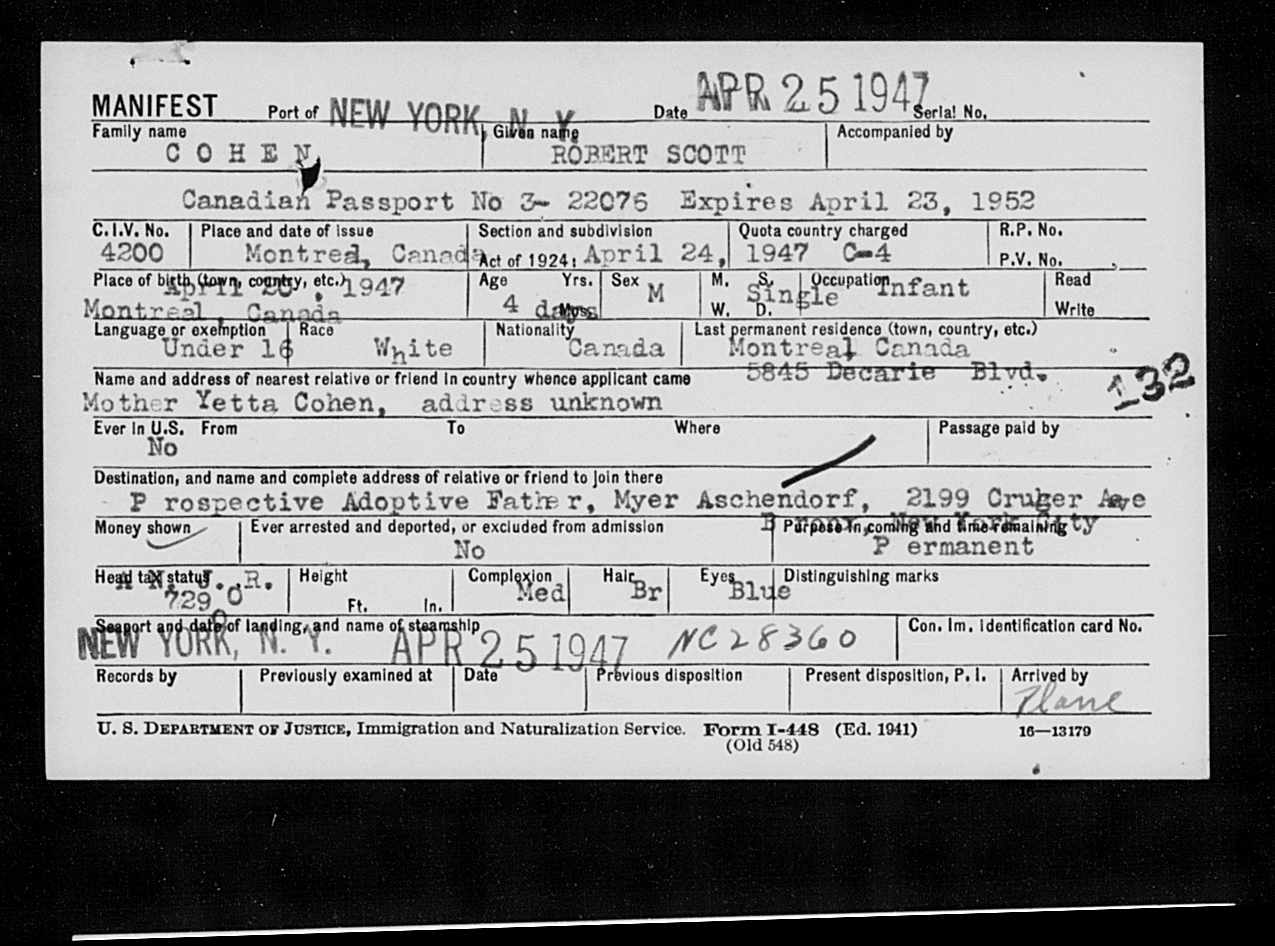 MANIFEST Port of NEW YORK, N. Y. Date APR 25 1947 Serial No.
Family name Given name Accompanied by
C O H E N ROBERT SCOTT
Canadian Passport No 3- 22076 Expires April 23, 1952
C.I.V. No. Place and date of issue Section and subdivision Quota country charged R.P. No.
4200 Montreal, Canada Act of 1924: April 24, 1947 C-4 P.V. No.
Place of birth (town, country, etc.) Age Yrs. Sex M. S. Occupation Read
April 20 , 1947 4 days Mos. M Single Infant
Montreal, Canada W. D. Write
Language or exemption Race Nationality Last permanent residence (town, country, etc.)
Under 16 White Canada Montreal Canada
Name and address of nearest relative or friend in country whence applicant came 5845 Decarie Blvd. 132
Mother Yetta Cohen, address unknown
Ever in U.S. From To Where Passage paid by
No
Destination, and name and complete address of relative or friend to join there
P rospective Adoptive Father, Myer Aschendorf, 2199 Cruger Ave
Money shown Ever arrested and deported, or excluded from admission Purpose in coming and time remaining
Bronx, New York City
No P ermanent
Head tax status Height Complexion Hair Eyes Distinguishing marks
N. J. R.
729.0 Ft. In. Med Br Blue
Seaport and date of landing, and name of steamship Con. Im. Identification card No.
NEW YORK, N. Y. APR 25 1947 NC28360
Records by Previously examined at Date Previous disposition Present disposition, P. I. Arrived by
Plane
U. S. DEPARTMENT OF JUSTICE, Immigration and Naturalization Service. Form I-448 (Ed. 1941) 16—13179
(Old 548)